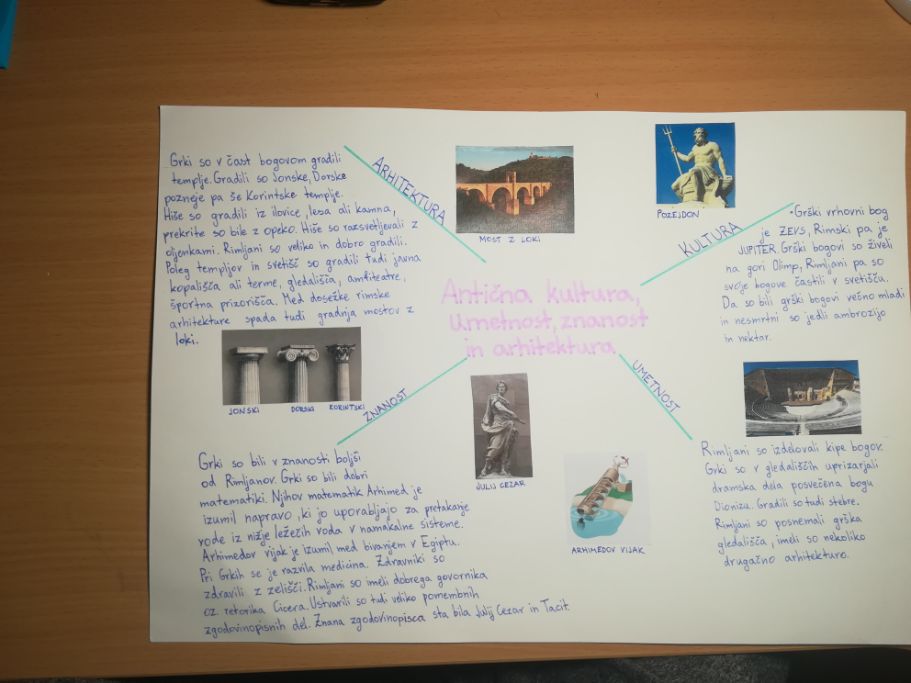 Antična kultura,
umetnost, znanost
in arhitektura
ARHITEKTURA
Grki so v čast bogovom gradili
templje. Gradili so Jonske, Dorske
pozneje pa še Korintske templje.
Hiše so gradili iz ilovice, lesa ali kamna,
prekrite so bile z opeko. Hiše so razsvetljevali z
oljenkami. Rimljani so veliko in dobro gradili.
Poleg templjov in svetišč so gradili tudi javna
kopališča ali terme, gledališča, amfiteatre,
športna prizorišča. Med dosežke rimske
arhitekture spada tudi gradnja mostov z
loki.
JONSKI
DORSKI
KORINTSKI
MOST Z LOKI
POZEJDON
KULTURA
• Grški vrhovni bog
je ZEVS, Rimski pa je
JUPITER. Grški bogovi so živeli
na gori Olimp, Rimljani pa so
svoje bogove častili v svetišču.
Da so bili grški bogovi večno mladi
in nesmrtni so jedli ambrozijo
in nektar.
ZNANOST
Grki so bili v znanosti boljši
od Rimljanov. Grki so bili dobri
matematiki. Njihov matematik Arhimed je
izumil napravo, ki jo uporabljajo za pretakanje
vode iz nižje ležečih voda v namakalne sisteme.
Arhimedov vijak je izumil med bivanjem v Egiptu.
Pri Grkih se je razvila medicina. Zdravniki so
zdravili z zelišči. Rimljani so imeli dobrega govornika
oz. retorika Cicera. Ustvarili so tudi veliko pomembnih
zgodovinopisnih del. Znana zgodovinopisca sta bila Julij Cezar in Tacit.
JULIJ CEZAR
ARHIMEDOV VIJAK
UMETNOST
Rimljani so izdelovali kipe bogov.
Grki so v gledališčih uprizarjali
dramska dela posvečena bogu
Dionizu. Gradili so tudi stebre.
Rimljani so posnemali grška
gledališča, imeli so nekoliko
drugačno arhitekturo.